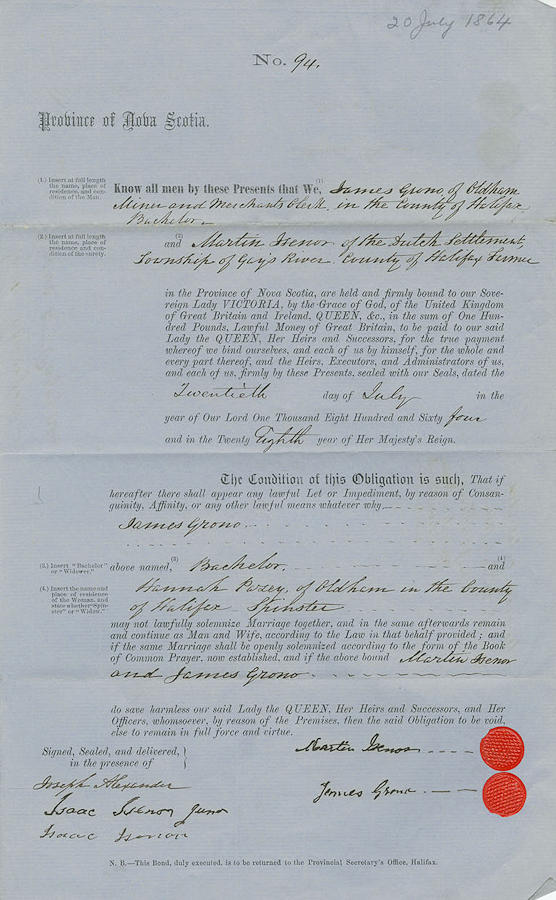 20 July 1864
No. 94.
Province of Nova Scotia.
(1.) Insert at full length the name, place of residence, and condition of the Man.
Know all men by these Presents that We, (1) James Grono, of Oldham
Miner and Merchants Clerk, in the County of Halifax
Bachelor
(2.) Insert at full length the name, place of residence and condition of the surety.
and (2) Martin Isenor of the Dutch Settlement,
Township of Gay's River County of Halifax Farmer
in the Province of Nova Scotia, are held and firmly bound to our Sove-
reign Lady VICTORIA, by the Grace of God, of the United Kingdom
of Great Britain and Ireland, QUEEN, &c., in the sum of One Hun-
dred Pounds, Lawful Money of Great Britain, to be paid to our said
Lady the QUEEN, Her Heirs and Successors, for the true payment
whereof we bind ourselves, and each of us by himself, for the whole and
every part thereof, and the Heirs, Executors, and Administrators of us,
and each of us, firmly by these Presents, sealed with our Seals, dated the
Twentieth day of July in the
year of Our Lord One Thousand Eight Hundred and Sixty four
and in the Twenty Eighth year of Her Majesty's Reign.
The Condition of this Obligation is such, That if
hereafter there shall appear any lawful Let or Impediment, by reason of Consan-
guinity, Affinity, or any other lawful means whatever why,
James Grono
(3.) Insert "Bachelor" or "Widower."
above named, (3) Bachelor. and (4)
(4.) Insert the name and place of residence of the Woman, and state whether "Spinster" or "Widow."
Hannah of Oldham in the County
of Halifax Spinster
may not lawfully solemnize Marriage together, and in the same afterwards remain
and continue as Man and Wife, according to the Law in that behalf provided; and
if the same Marriage shall be openly solemnized according to the form of the Book
of Common Prayer, now established, and if the above bound Martin Isenor
and James Grono
do save harmless our said Lady the QUEEN, Her Heirs and Successors, and Her
Officers, whomsoever, by reason of the Premises, then the said Obligation to be void,
else to remain in full force and virtue.
Signed, Sealed, and delivered,
in the presence of
Martin Isenor
James Grono
Joseph Alexander
Isaac Isenor Junor
Isaac Isenor
N. B.—This Bond, duly executed, is to be returned to the Provincial Secretary's Office, Halifax.